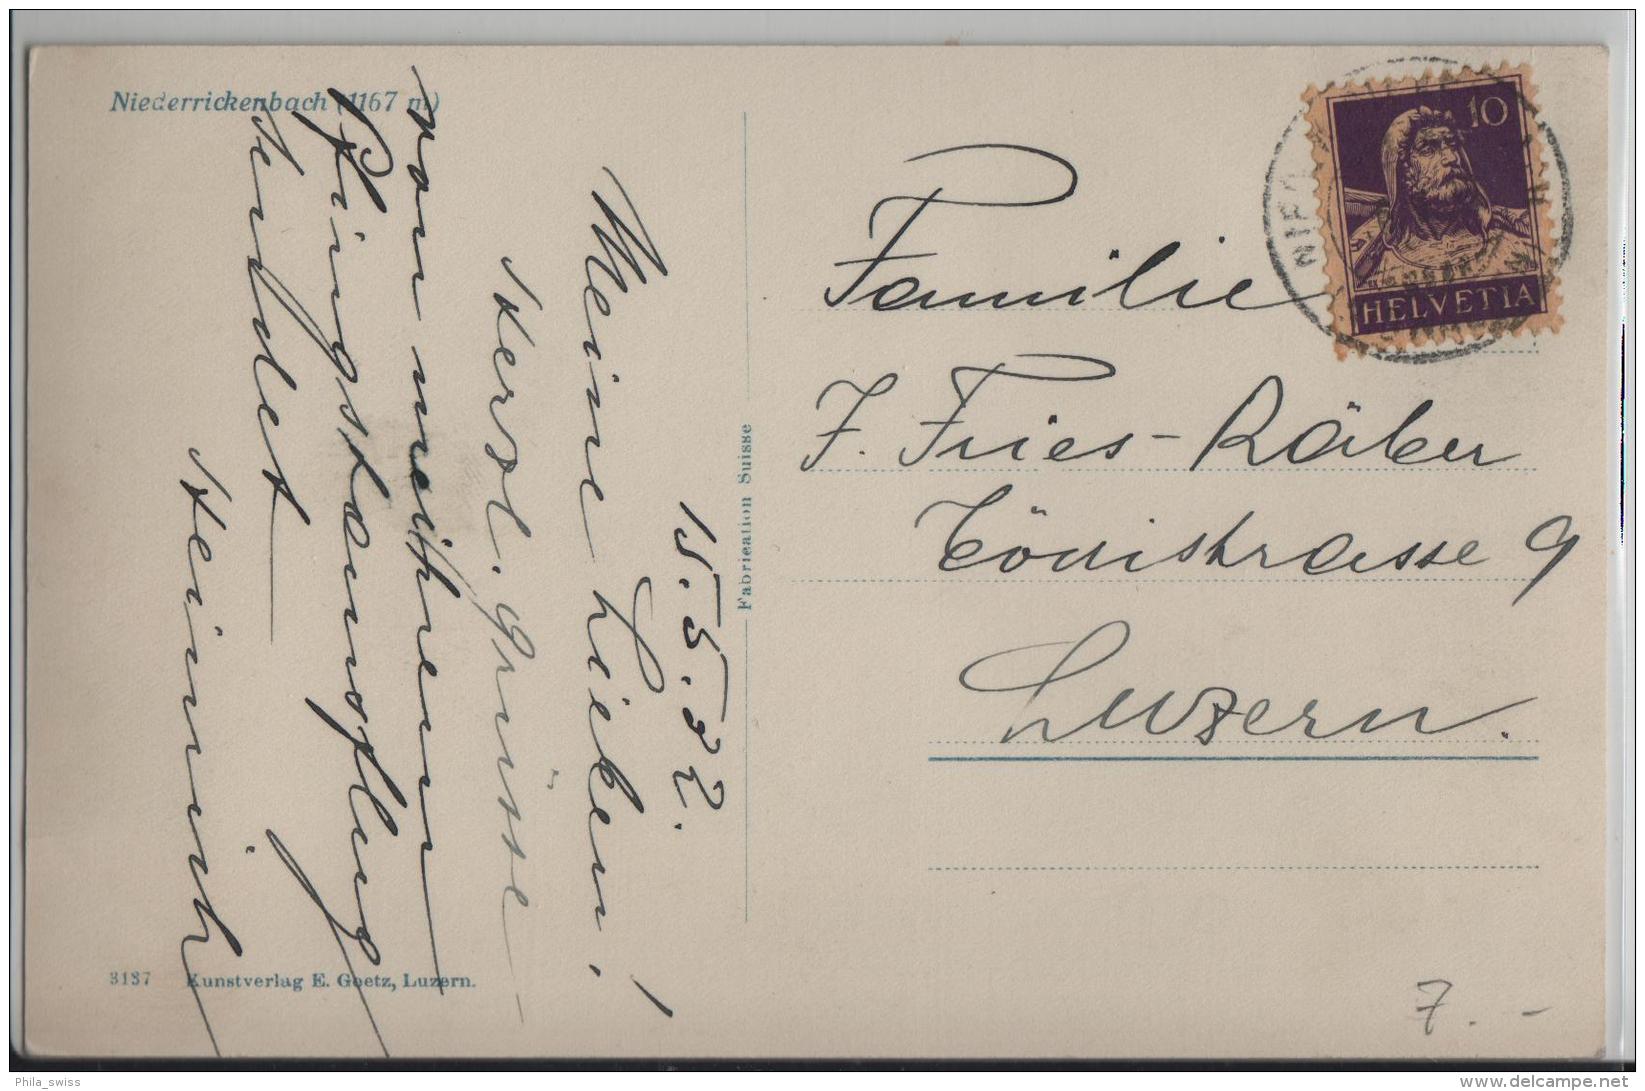 Niederrickenbach (1167 m)
15. 5. 32.
Meine Lieben!
Herzl. Grüsse
von meinem
Pfingstausflug
sendet
Heinrich
Fabrication Suisse
10
HELVETIA
Familie
J. Fries-Räber
Tödistrasse 9
Luzern.
3137 Kunstverlag E. Goetz, Luzern.
7.-
Phila_swiss
www.delcampe.net